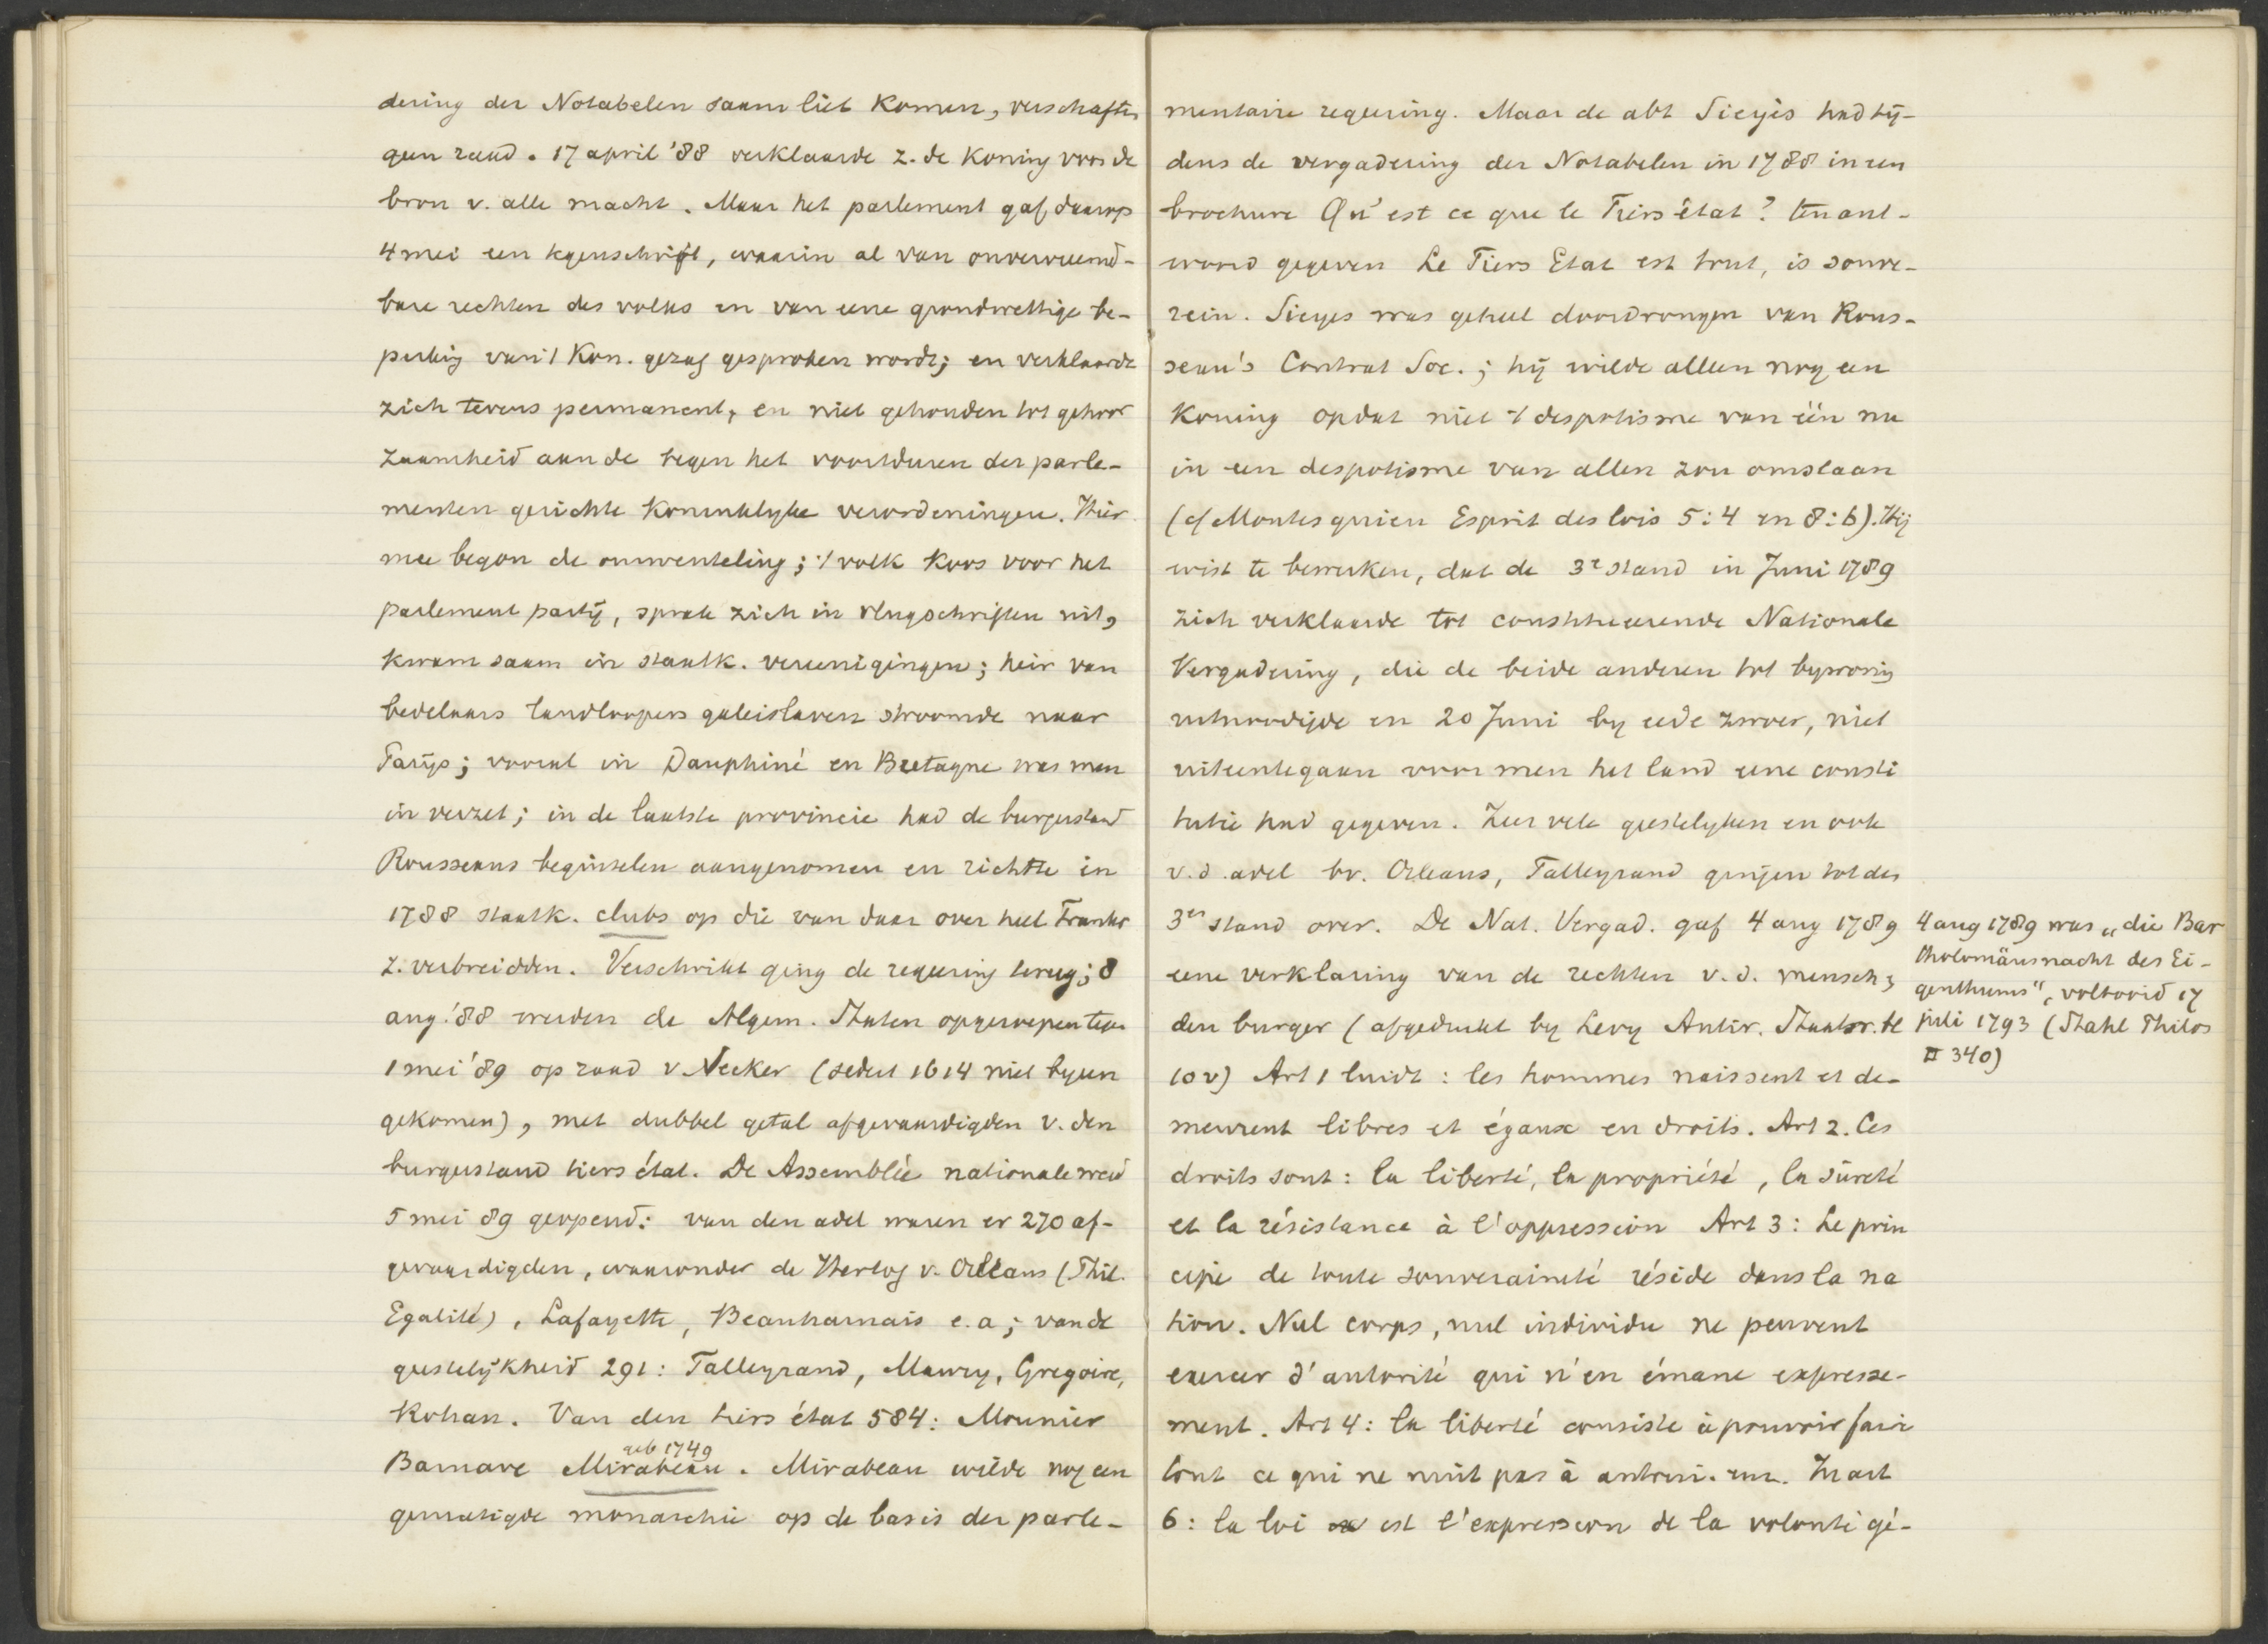 dering der Notabelen saam liet komen, verschafte
geen raad. 17 april '88 verklaarde z. de koning voor de
bron v. alle macht. Maar het parlement gaf daarop
4 mei een tegenschrift, waarin al van onvervreemd-
bare rechten des volks en van eene grondwettige be-
perking van 't Kon. gezag gesproken wordt; en verklaarde
zich tevens permanent, en niet gehouden tot gehoor
zaamheid aan de tegen het voortduren der parle-
menten gerichte koninklyke verordeningen. Hier
mee begon de omwenteling; 't volk koos voor het
parlement partij, sprak zich in vlugschriften uit,
kwam saam in staatk. vereenigingen; heir van
bedelaars landloopers galeislaven stroomde naar
Parijs; vooral in Dauphiné en Bretagne was men
in verzet; in de laatste provincie had de burgerstand
Rousseaus beginselen aangenomen en richtte in
1788 staatk. clubs op die van daar over heel Frankr
z. verbreidden. Verschrikt ging de regeering terug; 8
aug. '88 werden de Algem. Staten opgeroepen tegen
1 mei '89 op raad v Necker (sedert 1614 niet byeen
gekomen), met dubbel getal afgevaardigden v. den
burgerstand tiers état. De Assemblée nationale werd
5 mei 89 geopend: van den adel waren er 270 af-
gevaardigden, waaronder de Hertog v. Orleans (Phil.
Egalité), Lafayette, Beauharnais e.a; van de
geestelijkheid 291: Talleyrand, Maury, Gregoire,
Rohan. Van den tiers état 584: Mounier
geb 1749
Barnave Mirabeau. Mirabeau wilde nog een
gematigde monarchie op de basis der parle-
mentaire regeering. Maar de abt Sieyès had tij-
dens de vergadering der Notabelen in 1788 in een
brochure Qu'est ce que le Tiers état? ten ant-
woord gegeven Le Tiers Etat est tout, is souve-
rein. Sieyes was geheel doordrongen van Rous-
seau's Contrat Soc.; hij wilde alleen nog een
koning opdat niet 't despotisme van één nu
in een despotisme van allen zou omslaan
(cf Montesquieu Esprit des lois 5:4 en 8:6). Hij
wist te bewerken, dat de 3e stand in Juni 1789
zich verklaarde tot constitueerende Nationale
Vergadering, die de beide anderen tot bywoning
uitnoodigde en 20 Juni by eede zwoer, niet
uiteentegaan voor men het land eene consti
tutie had gegeven. Zeer vele geestelyken en ook
v.d. adel bv. Orleans, Talleyrand gingen tot den
3en stand over. De Nat. Vergad. gaf 4 aug 1789
eene verklaring van de rechten v. d. mensch &
den burger (afgedrukt by Levy Antir. Staatsr. bl
10v) Art 1 luidt: les hommes naissent et de-
meurent libres et égaux en droits. Art 2. Ces
droits sont: la liberté, la propriété, la sûreté
et la résistance à l'oppression Art 3: Le prin
cipe de toute souveraineté réside dans la na
tion. Nul corps, nul individu ne peuvent
exercer d'autorité qui n'en émane expresse-
ment. Art 4: la liberté consiste à pouvoir faire
tout ce qui ne nuit pas à autrui. enz. In art
6: la loi est l'expression de la volonté gé-
4 aug 1789 was „die Bar
tholomäusnacht des Ei-
genthums", voltooid 17
juli 1793 (Stahl Philos
II 340)